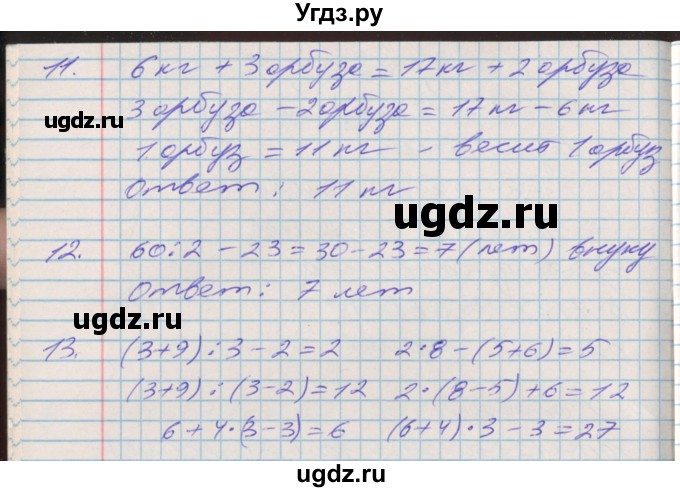 Угдз.ру
11. 6 кг + 3 арбуза = 17 кг + 2 арбуза
ugdz.ru
3 арбуза - 2 арбуза = 17 кг - 6 кг
1 арбуз = 11 кг - весит 1 арбуз
Ответ: 11 кг
ugdz.ru
12. 60:2 - 23 = 30 - 23 = 7 (лет) внуку
Ответ: 7 лет
ugdz.ru
13. (3+9):3-2=2 2·8-(5+6)=5
(3+9):(3-2)=12 2·(8-5)+6=12
6+4·(3-3)=6 (6+4)·3-3=27
ugdz.ru